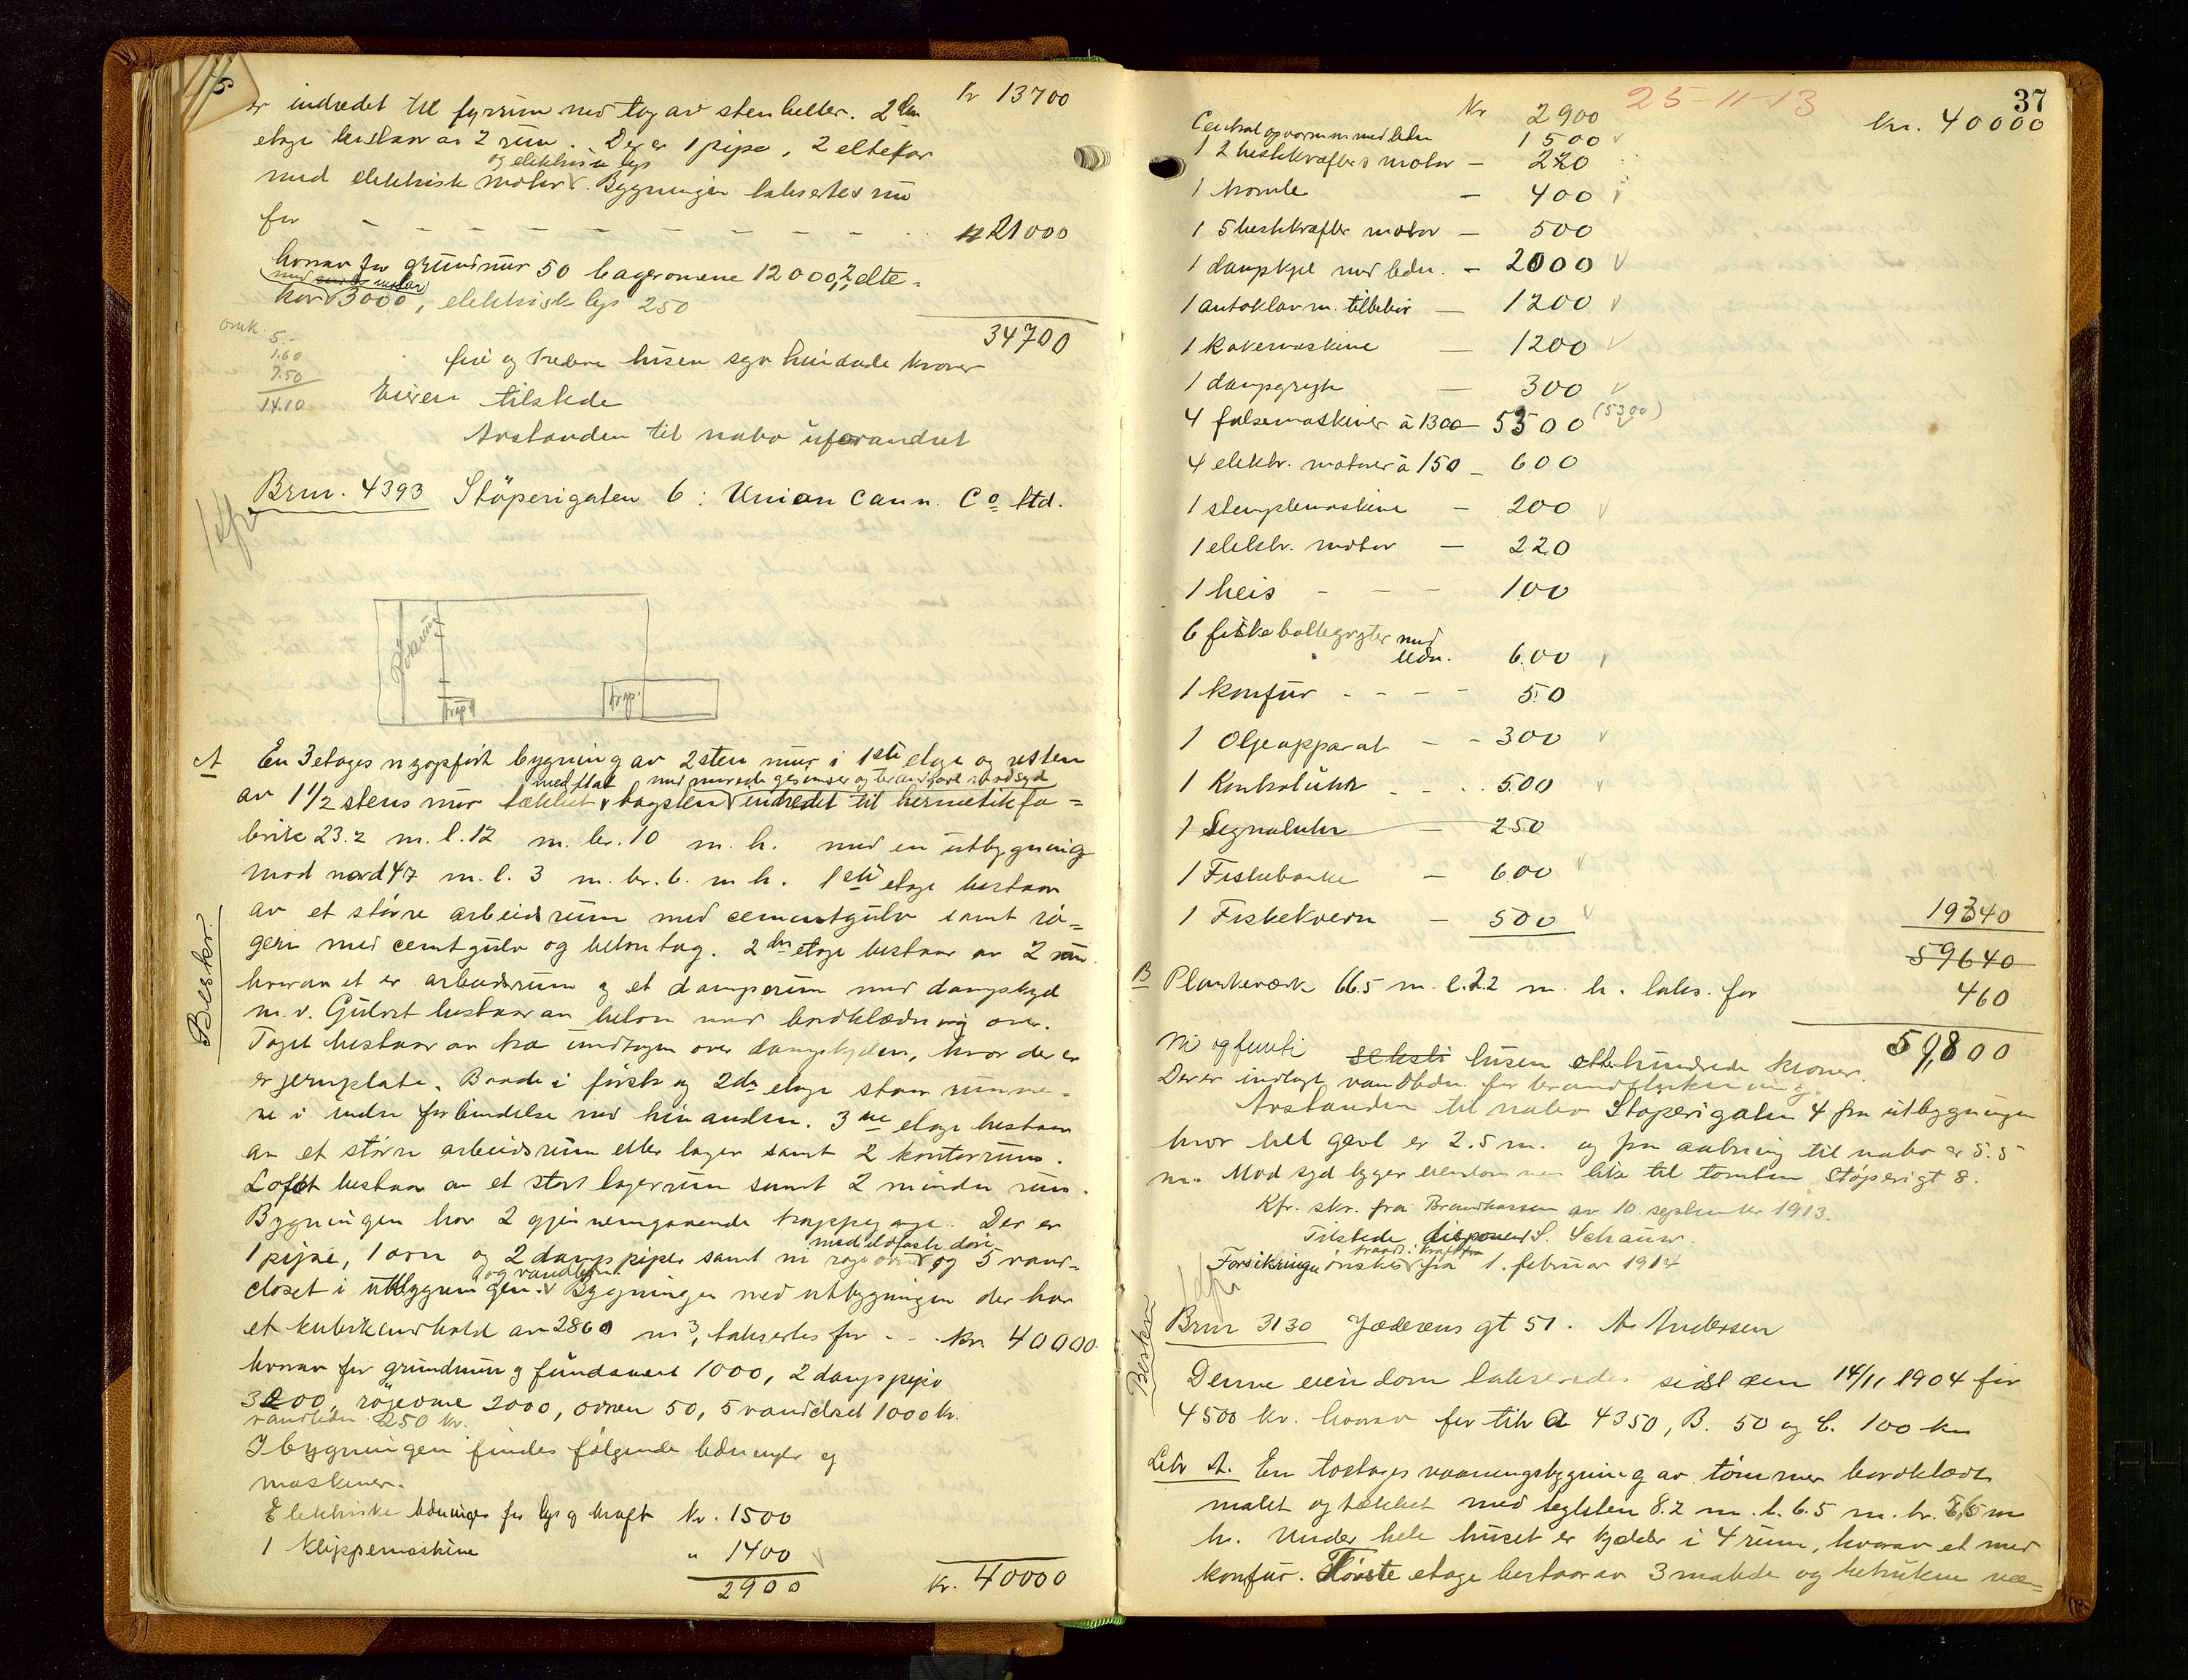 5
Kr 13700
er indredet til fyrrum med tag av stenheller. 2den
etage bestaar av 2 rum. Der er 1 pipe, 2 eltekar
og elektrisk lys
med elektrisk motor. Bygningen takseres nu
for - - - - - - - - - 21000
hvorav for grundmur 50 bagerovnene 12000, 2 elte-
med motor
kar 3000, elektrisk lys 250
34700
omk.
5.-
1.60
7.50
14.10
fire og tredve tusen syv hundrede kroner
Eieren tilstede
Avstanden til nabo uforandret
Brnr. 4393 Støperigaten 6: Union Cann. Co Ltd.
Rökerum
trap
trap.
A En 3 etages nyopført bygning av 2 sten mur i 1ste etage og resten
med flat med murede gesimser og brandgavl nord syd
av 1 1/2 stens mur tækket tagsten indredet til hermetikfa=
brik 23.2 m. l. 12 m. br. 10 m. h. med en utbygning
mod nord 4.7 m. l. 3 m. br. 6. m h. 1ste etage bestaar
av et større arbeidsrum med cementgulv samt rø=
geri med cemtgulv og betontag. 2den etage bestaar av 2 rum
hvorav et er arbeidsrum og et damperum med dampskyd
m.v. Gulvet bestaar av beton med bordklædning over.
Taget bestaar av træ undtagen over dampskyden, hvor der er
er jernplate. Baade i første og 2den etage staar rumme-
ne i indre forbindelse med hinanden. 3die etage bestaar
av et større arbeidsrum eller lager samt 2 kontorrum.
Loftet bestaar av et stort lagerrum samt 2 mindre rum.
Bygningen har 2 gjennemgaaende trappegange. Der er
med ildfaste døre
1 pipe, 1 ovn og 2 damppiper samt ni røgeovne og 5 vand-
og vandledn.
closet i utbygningen. Bygningen med utbygningen der har
et kubikindhold av 2860 m3, takseres for - - - kr. 40000
hvorav for grundmur og fundament 1000, 2 damppiper
3200, røgeovne 2000, ovnen 50, 5 vandclset 1000 kr.
vandledn. 250 kr.
I bygningen findes følgende ledninger og
maskiner.
Elektriske ledninger for lys og kraft kr. 1500
1 Klippemaskine " 1400
2900
kr. 40000
Beskr.
37
25-11-13
Kr 2900
kr. 40000
Centralopvarmn med ledn 1500
1 2 hestekræfters motor - 220
1 tromle - 400
1 5 hestekræfter motor - 500
1 dampkjel med ledn. - 2000
1 autoklav m. tilbehör - 1200
1 kakemaskine - 1200
1 dampgryte - 300
4 falsemaskiner à 1300 5300 (5300)
4 elektr. motorer à 150 - 600
1 stemplemaskine - 200
1 elektr. motor - 220
1 heis - - - 100
6 fiskebollegryter med
ledn. 600
1 Komfur - - - - 50
1 Oljeapparat - - 300
1 Kontroluhr - - - 500
1 Signaluhr - 250
1 Fiskebanke - 600
1 Fiskekvern - 500
19340
59640
B Plankeværk 66.5 m. l. 2.2 m. h. taks. for 460
59,800
Ni og femti seksti tusen ottehundrede kroner.
Der er indlagt vandledn. for brandslukning.
Avstanden til nabo Støperigaten 4 fra utbygningen
hvor hel gavl er 2.5 m. og fra aabning til nabo er 5.5
m. Mod syd ligger eiendommen like til tomten Støperigt 8.
Kfr. skr. fra Brandkassen av 10. september 1913.
Tilstede disponent S. Schanw.
traadt i kraft fra
Forsikringen ønskes fra 1. februar 1914
Beskr
Brnr 3130 Jæderens gt 51. A. Andersen
Denne eiendom takseredes sidst den 14/11 1904 for
4500 kr. hvorav for litr A 4350, B. 50 og C. 100 kr
Litr A. En toetages vaaningsbygning av tømmer bordklædt
malet og tækket med teglsten 8.2 m. l. 6.5 m. br. 5,5 m
h. Under hele huset er kjelder i 4 rum, hvorav et med
komfur. Første etage bestaar av 3 malede og betrukne væ=